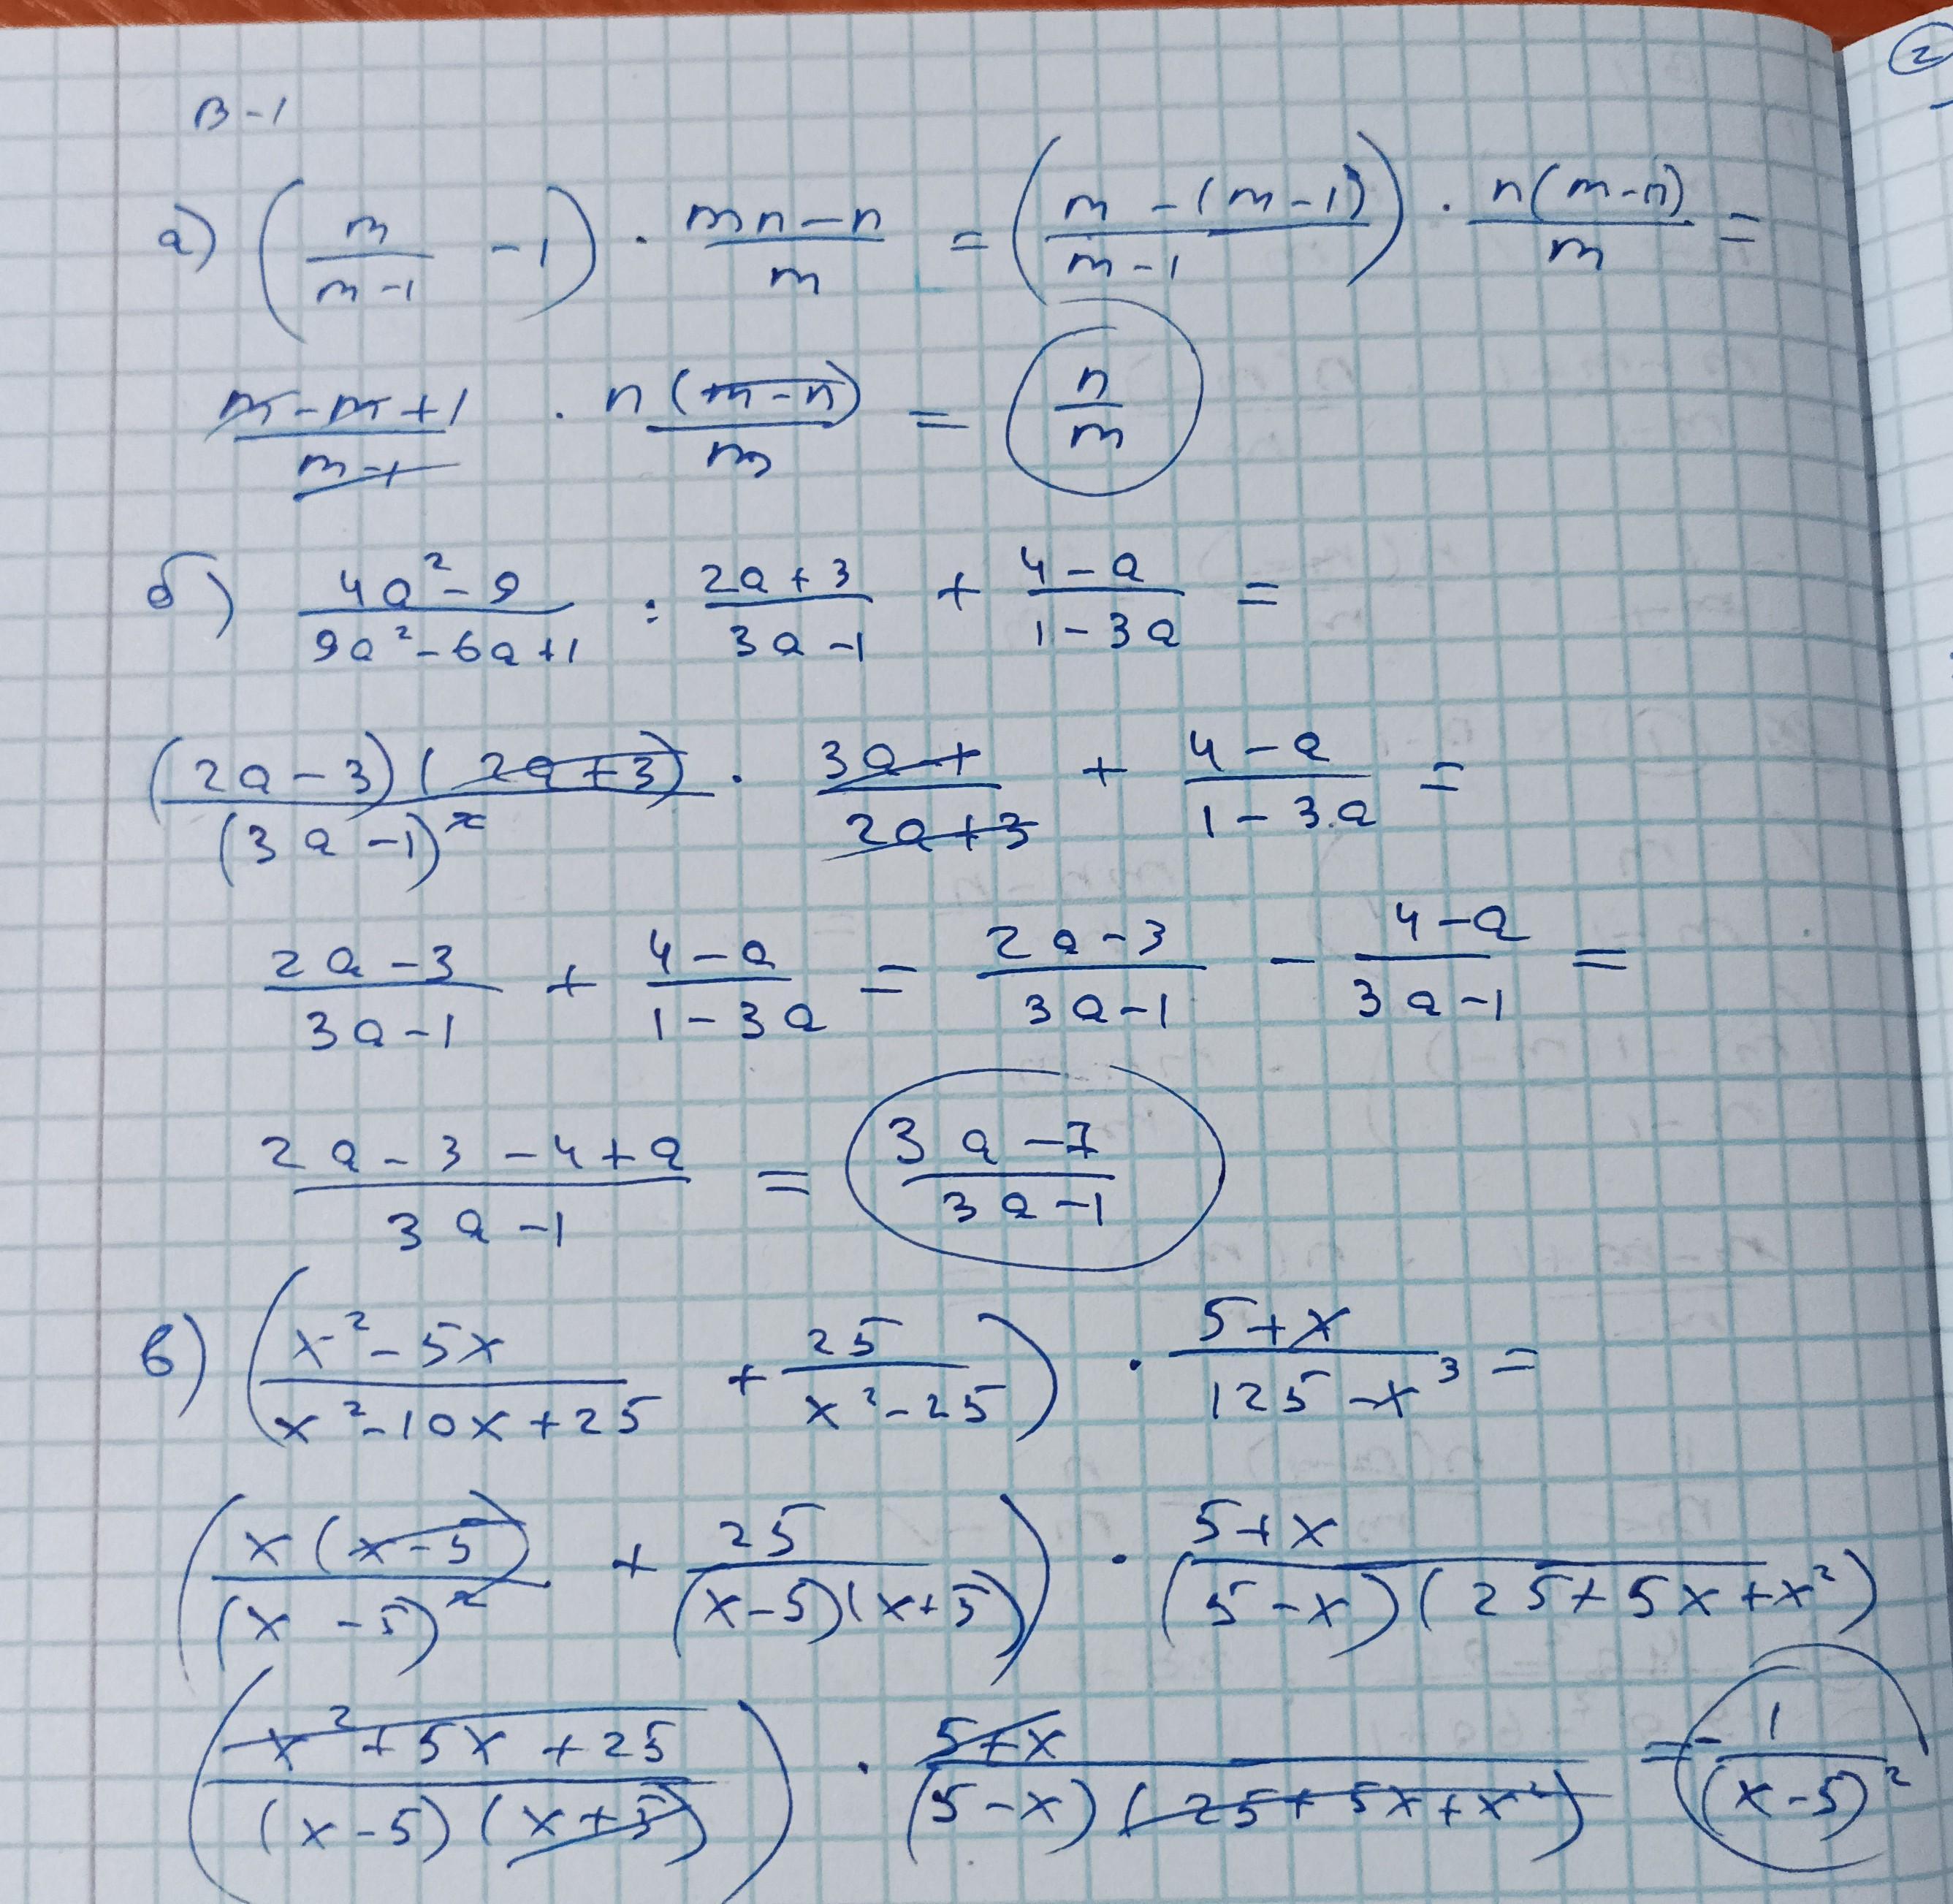 В-1
②
а) (m/(m-1) - 1) · (mn-n)/m = ((m-(m-1))/(m-1)) · n(m-n)/m =
(m-m+1)/(m-1) · n(m-n)/m = n/m
б) (4a²-9)/(9a²-6a+1) : (2a+3)/(3a-1) + (4-a)/(1-3a) =
(2a-3)(2a+3)/(3a-1)² · (3a-1)/(2a+3) + (4-a)/(1-3a) =
(2a-3)/(3a-1) + (4-a)/(1-3a) = (2a-3)/(3a-1) - (4-a)/(3a-1) =
(2a-3-4+a)/(3a-1) = (3a-7)/(3a-1)
в) ((x²-5x)/(x²-10x+25) + 25/(x²-25)) · (5+x)/(125-x³) =
(x(x-5)/(x-5)² + 25/((x-5)(x+5))) · (5+x)/((5-x)(25+5x+x²))
((x²+5x+25)/((x-5)(x+5))) · (5+x)/((5-x)(25+5x+x²)) = -1/(x-5)²